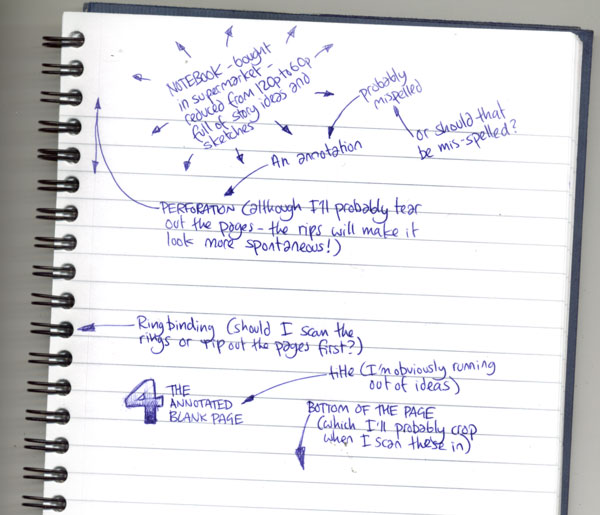 NOTEBOOK - bought
in supermarket -
reduced from 120p to 60p
full of story ideas and
sketches
probably
mispelled
or should that
be mis-spelled?
An annotation
PERFORATION (although I'll probably tear
out the pages - the rips will make it
look more spontaneous!)
Ringbinding (should I scan the
rings or rip out the pages first?)
title (I'm obviously running
out of ideas)
4 THE
ANNOTATED
BLANK PAGE
BOTTOM OF THE PAGE
(which I'll probably crop
when I scan these in)